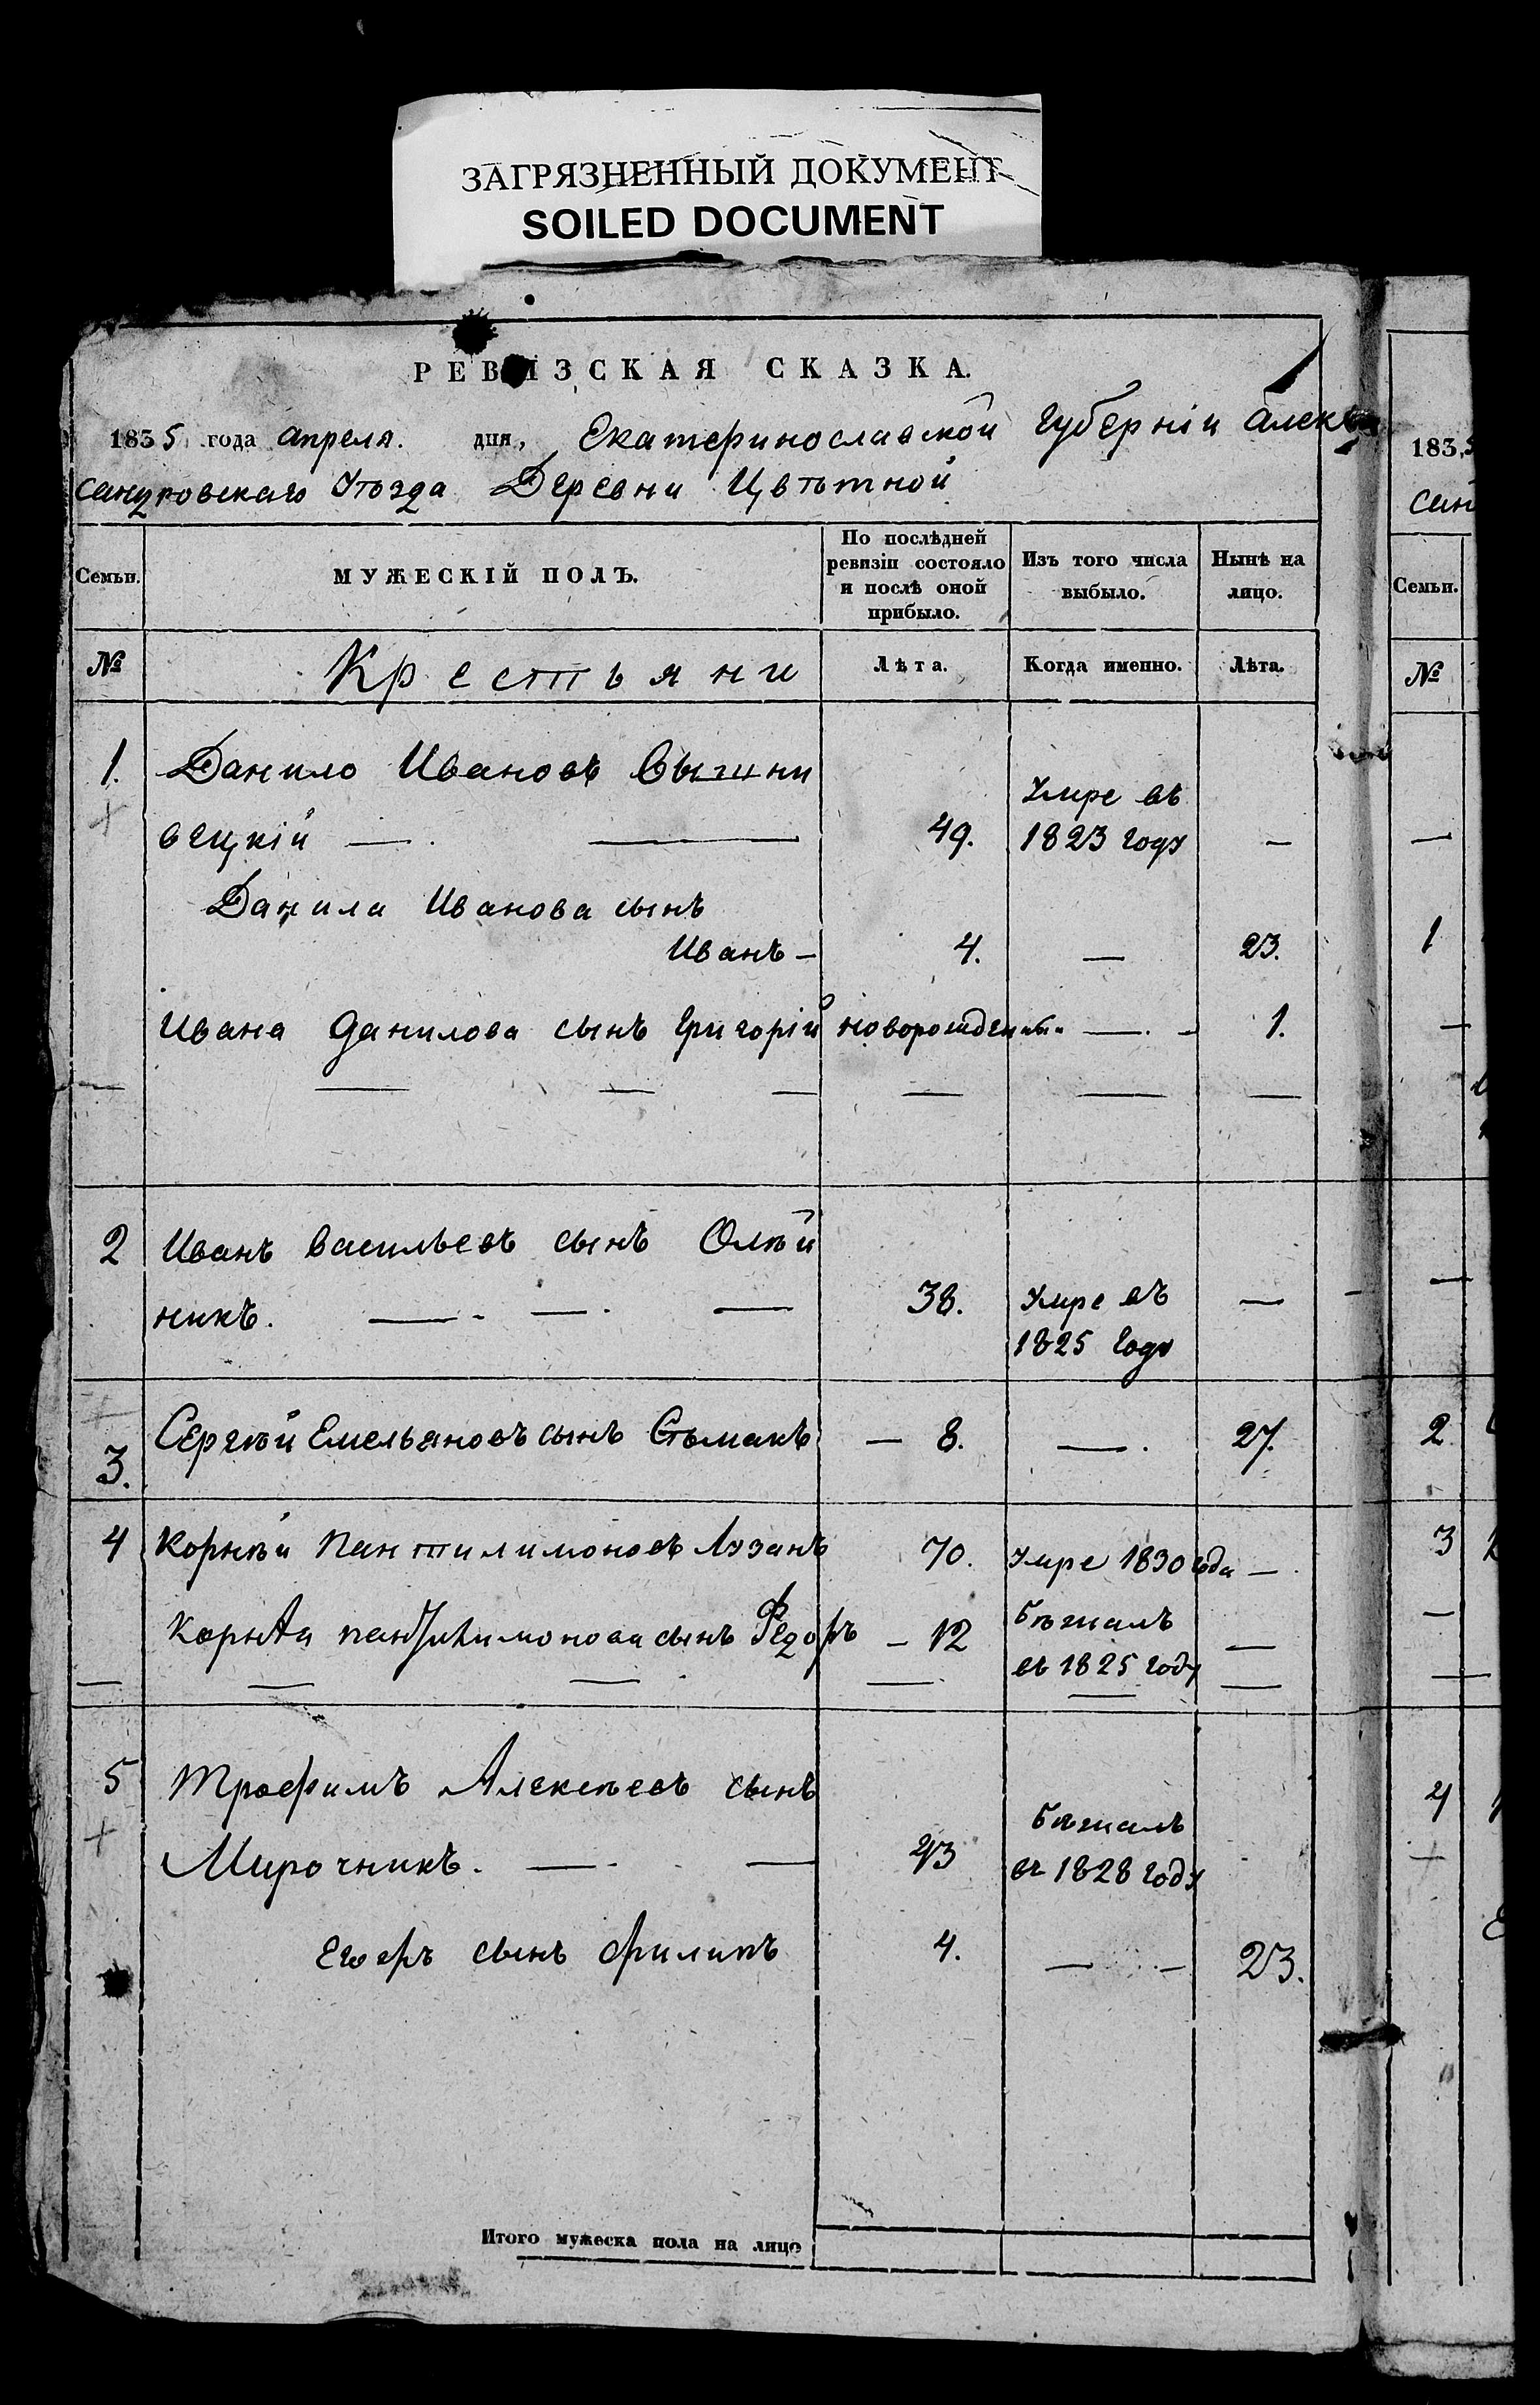 ЗАГРЯЗНЕННЫЙ ДОКУМЕНТ
SOILED DOCUMENT
РЕВИЗСКАЯ СКАЗКА.
1835 года апреля. дня, Екатеринославской Губерніи Алек
сандровскаго Уѣзда Деревни Цвѣтной
Семьи. МУЖЕСКІЙ ПОЛЪ. По послѣдней ревизіи состояло и послѣ оной прибыло. Изъ того числа выбыло. Нынѣ на лицо.
№ Крестьяни Лѣта. Когда именно. Лѣта.
1. Данило Ивановъ Вышни
вецкій — 49. Умре въ 1823 году —
Данила Иванова сынъ
Иванъ — 4. — 23.
Ивана Данилова сынъ Григорій новорожденный — 1.
2 Иванъ Васильевъ сынъ Олѣй
никъ. — 38. Умре въ 1825 году —
3. Сергѣй Емельяновъ сынъ — 8. — 27.
4 Корнѣй Пантилимоновъ Лузанъ 70. Умре 1830 года —
Корнѣя Пантилимонова сынъ Федоръ — 12 Бѣжалъ въ 1825 году —
5 Трофимъ Алексѣевъ сынъ
Мирочникъ. — 43 Бѣжалъ въ 1828 году
Его сынъ Филипъ 4. — 23.
Итого мужеска пола на лицо
183
сан
Семьи.
№
1
2
3
4